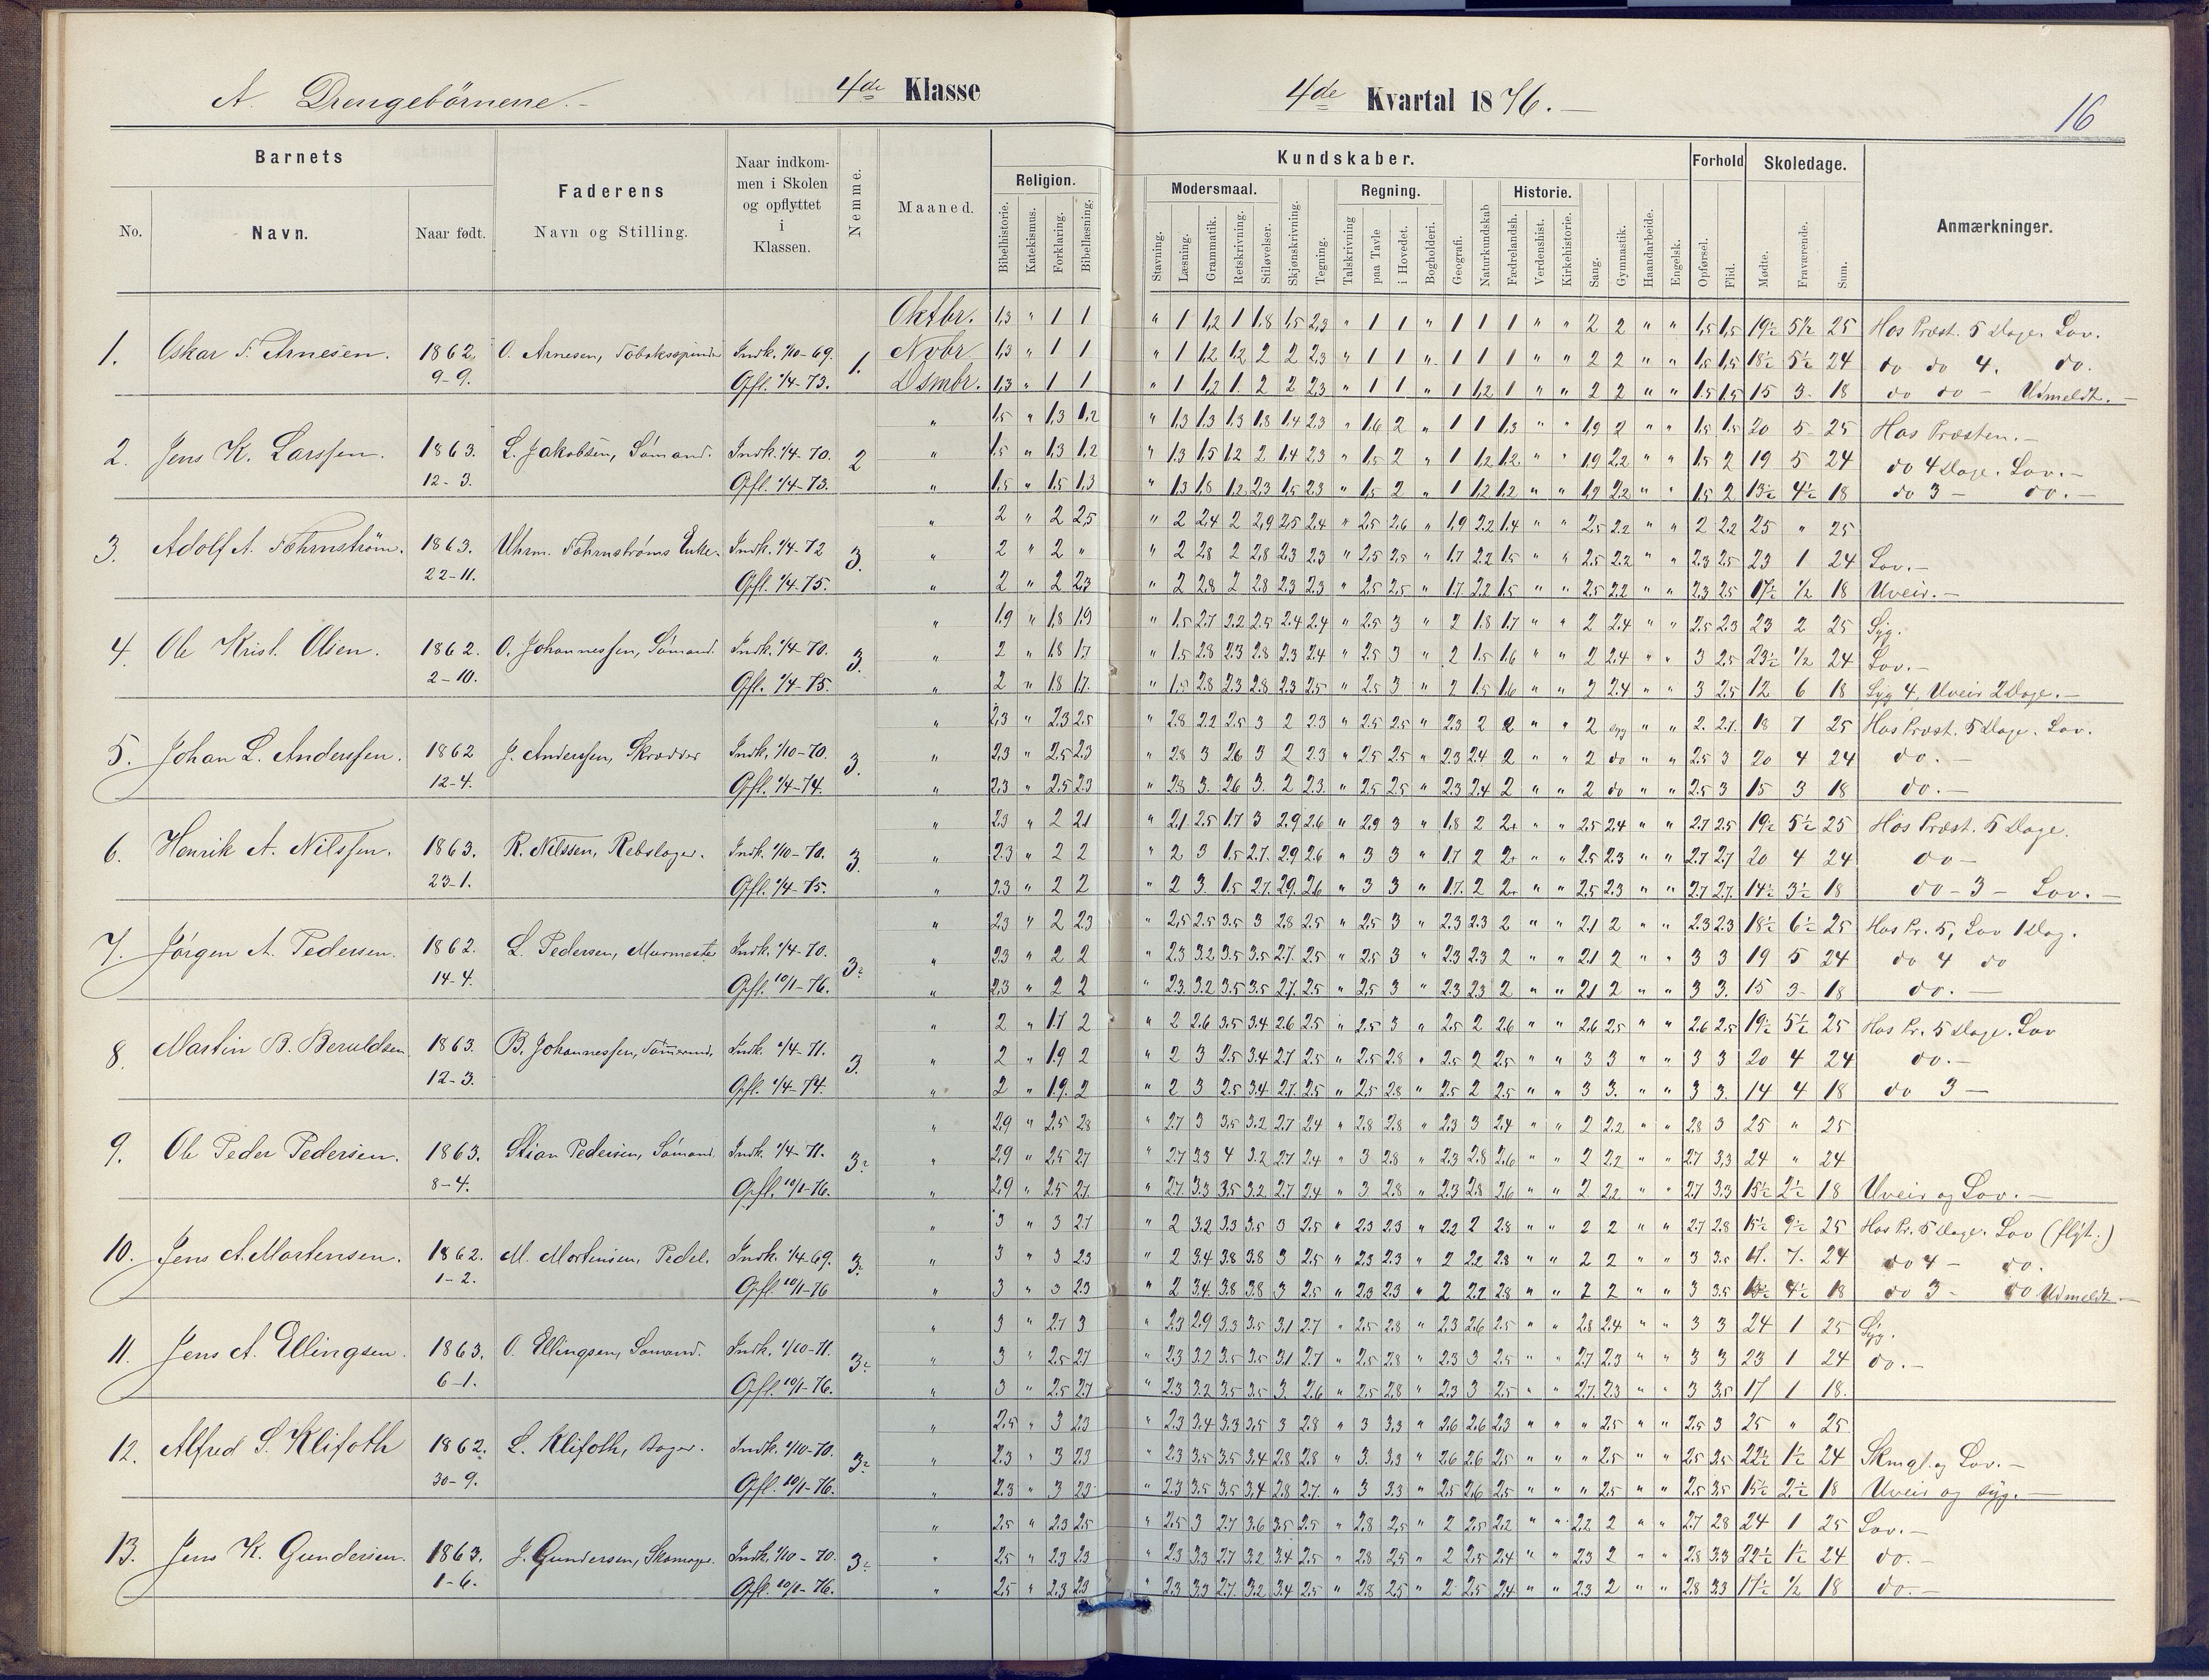 A. Drengebörnene.- 4de Klasse 4de Kvartal 1876.- 16
Barnets Faderens Naar indkommen i Skolen og opflyttet i Klassen. Nemme. Maaned. Kundskaber. Forhold Skoledage. Anmærkninger.
No. Navn. Naar født. Navn og Stilling. Religion. Modersmaal. Regning. Historie.
Bibelhistorie. Katekismus. Forklaring. Bibellæsning. Stavning. Læsning. Grammatik. Retskrivning. Stiløvelser. Skjønskrivning. Tegning. Talskrivning paa Tavle i Hovedet. Bogholderi. Geografi. Naturkundskab Fædrelandsh. Verdenshist. Kirkehistorie. Sang. Gymnastik. Haandarbeide. Engelsk. Opførsel. Flid. Mødte. Fraværende. Sum.
Oktbr. 1,3 " 1 1 " 1 1,2 1 1,8 1,5 2,3 " 1 1 " 1 1 1 " " 2 2 " " 1,5 1,5 19½ 5½ 25 Hos Præst. 5 Dage. Lov.
1. Oskar F. Arnesen. 1862. O. Arnesen, Indk. 1/10-69. 1. Nvbr. 1,3 " 1 1 " 1 1,2 1,2 2 2 2,3 " 1 1 " 1 1 1 " " 2 2 " " 1,5 1,5 18½ 5½ 24 do do 4. do.
9-9. Opfl. 1/4-73. Dsmbr. 1,3 " 1 1 " 1 1,2 1. 2 2 2,3 " 1 1 " 1 1,2 1 " " 2 2 " " 1,5 1,5 15 3- 18 do do - Udmeldt.-
" 1,5 " 1,3 1,2 " 1,3 1,3 1,3 1,8 1,4 2,3 " 1,6 2 " 1 1 1,3 " " 1,9 2 " " 1,5 1,5 20 5- 25 Hos Præsten.-
2. Jens K. Larssen. 1863. L. Jakobsen, Sömand. Indk. 1/4-70. 2 " 1,5 " 1,3 1,2 " 1,3 1,5 1,2 2 1,4 2,3 " 1,5 2 " 1 1,2 1,2 " " 1,9 2,2 " " 1,5 2 19 5 24 do 4 Dage. Lov.-
12-3. Opfl. 1/4-73. " 1,5 " 1,5 1,3 " 1,3 1,8 1,2 2,3 1,5 2,3 " 1,5 2 " 1 1,2 1,2 " " 1,9 2,2 " " 1,5 2 13½ 4½ 18 do 3 - do.-
" 2 " 2 2,5 " 2 2,4 2 2,9 2,5 2,4 " 2,5 2,6 " 1,9 2,2 1,4 " " 2,5 2,2 " " 2 2,2 25 " 25
3. Adolf A. 1863. Uhrm. Enke. Indk. 1/4-72 3. " 2 " 2 " " 2 2,8 2 2,8 2,3 2,3 " 2,5 2,5 " 1,7 2,2 1,5 " " 2,5 2,2 " " 2,3 2,5 23 1 24 Lov.-
22-11. Opfl. 1/4-75. " 2 " 2 2,3 " 2 2,8 2 2,8 2,3 2,3 " 2,5 2,5 " 1,7 2,2 1,5 " " 2,5 2,2 " " 2,3 2,5 17½ ½ 18 Uveir.-
" 1,9 " 1,8 1,9 " 1,5 2,7 2,2 2,5 2,4 2,4 " 2,5 3 " 2 1,8 1,7 " " 2 2,4 " " 2,5 2,3 23 2 25 Syg.
4. Ole Krist. Olsen. 1862. O. Johannessen, Sömand. Indk. 1/4-70. 3. " 2 " 1,8 1,7 " 1,5 2,8 2,3 2,8 2,3 2,4 " 2,5 3 " 2 1,5 1,6 " " 2 2,4 " " 3 2,5 23½ ½ 24 Lov.-
2-10. Opfl. 1/4-75. " 2 " 1,8 1,7. " 1,5 2,8 2,3 2,8 2,3 2,5 " 2,5 3 " 2 1,5 1,6 " " 2 2,4 " " 3 2,5 12 6 18 Syg 4, Uveir 2 Dage.-
" 2,3 " 2,3 2,5 " 2,8 2,2 2,5 3 2 2,3 " 2,5 2,5 " 2,3 2 2 " " 2 syg " " 2. 2,7. 18 7 25 Hos Præst. 5 Dage. Lov.
5. Johan L. Anderssen. 1862 J. Anderssen, Skrædder Indk. 1/10-70. 3. " 2,3 " 2,5 2,3 " 2,8 3 2,6 3 2 2,3 " 2,5 2,5 " 2,3 2,4 2 " " 2 do " " 2,5 3 20 4 24 do.-
12-4. Opfl. 1/4-74. " 2,3 " 2,5 2,3 " 2,8 3. 2,6 3. 2 2,3. " 2,5 2,5 " 2,3 2,4 2 " " 2 do " " 2,5 3 15 3 18 do.-
" 2,3 " 2 2,1 " 2,1 2,5 1,7 3 2,9 2,6 " 2,9 3 " 1,8 2 2+ " " 2,5 2,4 " " 2,7 2,5 19½ 5½ 25 Hos Præst. 5 Dage.
6. Henrik A. Nilssen. 1863. R. Nilssen, Rebslager. Indk. 1/10-70. 3. " 2,3 " 2 2 " 2 3 1,5 2,7. 2,9 2,6 " 3 3 " 1,7 2 2+ " " 2,5 2,3 " " 2,7 2,7 20 4 24 do-
23-1. Opfl. 1/4-75. " 2,3 " 2 2 " 2 3. 1,5 2,7. 2,9. 2,6 " 3 3 " 1,7. 2 2+ " " 2,5 2,3 " " 2,7 2,7. 14½ 3½ 18 do-3- Lov.-
" 2,3 " 2 2,3 " 2,5 2,5 3,5 3 2,8 2,5 " 2,5 3 " 2,3 2,3 2 " " 2,1 2 " " 2,3 2,3 18½ 6½ 25 Hos Pr. 5, Lov 1 Dag.
7. Jörgen A. Pedersen. 1862. L. Pedersen, Murmester Indk. 1/4-70. 3- " 2,3 " 2 2 " 2,3 3,2 3,5 3,5 2,7. 2,5 " 2,5 3 " 2,3 2,3 2 " " 2,1 2 " " 3 3 19 5 24 do 4 do
14-4. Opfl. 10/1-76. " 2,3 " 2 2 " 2,3. 3,2 3,5 3,5 2,7. 2,5 " 2,5 3 " 2,3 2,3 2 " " 2,1 2 " " 3 3. 15 3- 18 do.-
" 2 " 1,7 2 " 2 2,6 3,5 3,4 2,6 2,5 " 2,5 3 " 2,5 2 2,6 " " 2,6 2,5 " " 2,6 2,5 19½ 5½ 25 Hos Pr. 5 Dage. Lov
8. Martin B. Beruldsen. 1863. B. Johannessen, Tömmermd. Indk. 1/4-71. 3. " 2 " 1,9 2 " 2 3 2,5 3,4 2,7 2,5 " 2,5 2,8 " 2,5 2 2,5 " " 3 3 " " 3 3 20 4 24 do.-
12-3. Opfl. 1/4-74. " 2 " 1,9. 2 " 2 3 2,5 3,4 2,7. 2,5 " 2,5 2,8 " 2,5 2 2,5 " " 3 3. " " 3 3. 14 4 18 do 3-
" 2,9 " 2,5 2,8 " 2,7 3 3,5 3,2 2,7 2,4 " 2,8 2,8 " 2,3 3 2,4 " " 2 2,2 " " 2,8 3 25 " 25
9. Ole Peder Pedersen. 1863. Stian Pedersen, Sömand. Indk. 1/4-71. 3- " 2,9 " 2,5 2,7 " 2,7 3,3 4 3,2 2,7 2,4 " 3 2,8 " 2,3 2,8 2,6 " " 2 2,2 " " 2,7 3,3 24 " 24
8-4. Opfl. 10/1-76. " 2,9 " 2,5 2,7. " 2,7. 3,3 3,5 3,2 2,7 2,4 " 3. 2,8 " 2,3 2,8 2,6 " " 2 2,2 " " 2,7 3,3 15½ 2½ 18 Uveir og Lov.-
" 3 " 3 2,7 " 2 3,2 3,3 3,5 3 2,5 " 2,3 2,3 " 2,2 2 2,8 " " 2 2 " " 2,7 2,8 15½ 9½ 25 Hos Pr. 5 Dage. Lov (flyt.)
10. Jens A. Mortensen. 1862. M. Mortensen, Pedel. Indk. 1/4-69. 3- " 3 " 3 2,3 " 2 3,4 3,8 3,8 3 2,5 " 2,3 2,3 " 2 2,2 2,8 " " 2 2 " " 3 3,5 17. 7. 24 do 4 - do.
1-2. Opfl. 10/1-76 " 3 " 3 2,3 " 2 3,4. 3,8 3,8 3 2,5 " 2,3 2,3 " 2 2,2 2,8 " " 2 2 " " 3 3,5 13½ 4½ 18 do 3- do Udmeldt.-
" 3 " 2,7 3 " 2,3 2,9 3,3 3,5 3,1 2,7 " 2,5 2,8 " 2,3 2,6 2,5 " " 2,8 2,4 " " 3 3 24 1 25 Syg.
11. Jens A. Ellingsen. 1863. O. Ellingsen, Sömand. Indk. 1/10-71. 3- " 3 " 2,5 2,7 " 2,3 3,2 3,5 3,5 3,1 2,7 " 2,5 2,8 " 2,3 3 2,5 " " 2,7 2,3 " " 3 3 23 1 24 do.-
6-1. Opfl. 10/1-76. " 3 " 2,5 2,7 " 2,3 3,2 3,5 3,5 3. 2,6 " 2,5 2,8 " 2,3 3 2,5 " " 2,7. 2,3 " " 3 3,5 17 1 18.
" 2,5 " 3 2,3 " 2,3 3,4 3,3 3,5 3 2,8 " 3 3,3 " 2,6 2,6 2,3 " " " 2,5 " " 2,5 3 25 " 25
12. Alfred S. Klifoth 1862. L. Klifoth, Bager. Indk. 1/10-70. 3- " 2,3 " 3 2,3 " 2,3 3,5 3,5 3,4 2,8 2,8 " 3. 3,3 " 2,6 2,6 2,5 " " " 2,5 " " 2,5 3,5 22½ 1½ 24 Skmgl. og Lov.-
30-9. Opfl. 10/1-76. " 2,3 " 3 2,3 " 2,3 3,5 3,5 3,4 2,8 2,7. " 3 3,3 " 2,5 2,6 2,5 " " " 2,5 " " 2,5 3,5 15½ 2½ 18 Uveir og syg.-
" 2,5 " 2,3 2,5 " 2,5 3 2,7 3,6 3,5 2,5 " 2,8 2,5 " 2 2,5 2,2 " " 2,2 2 " " 2,7 2,8 24 1 25 Lov.-
13. Jens K. Gundersen. 1863. J. Gundersen, Skomager. Indk. 1/10-70. 3- " 2,5 " 2,3 2,3 " 2,3 3,3 2,7 3,2 3,4 2,5 " 2,8 2,5 " 2 2,5 2,4 " " 2,3 2 " " 2,8 3,3 22½ 1½ 24 do.-
1-6. Opfl. 10/1-76. " 2,5 " 2,3 2,3 " 2,3 3,3 2,7. 3,2 3,4 2,5 " 2,8 2,5 " 2 2,5 2,4 " " 2,3 2 " " 2,8 3,3 17½ ½ 18 do.-